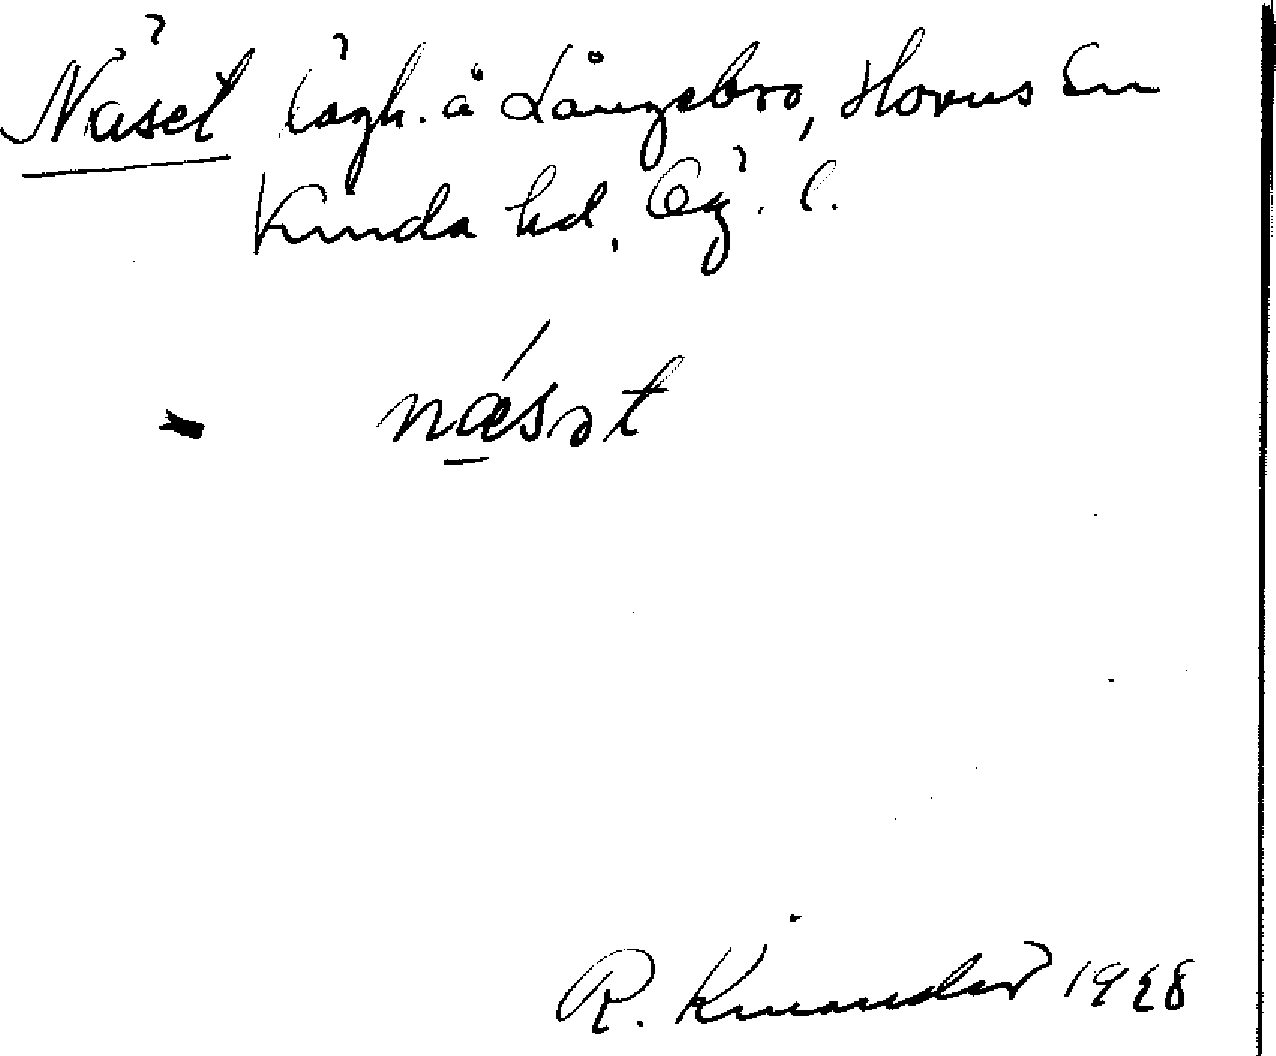 Näset lägh. å Långsbro, Horns sn
Kinda hd, Ög. l.
næsət
R. Kinander 1928